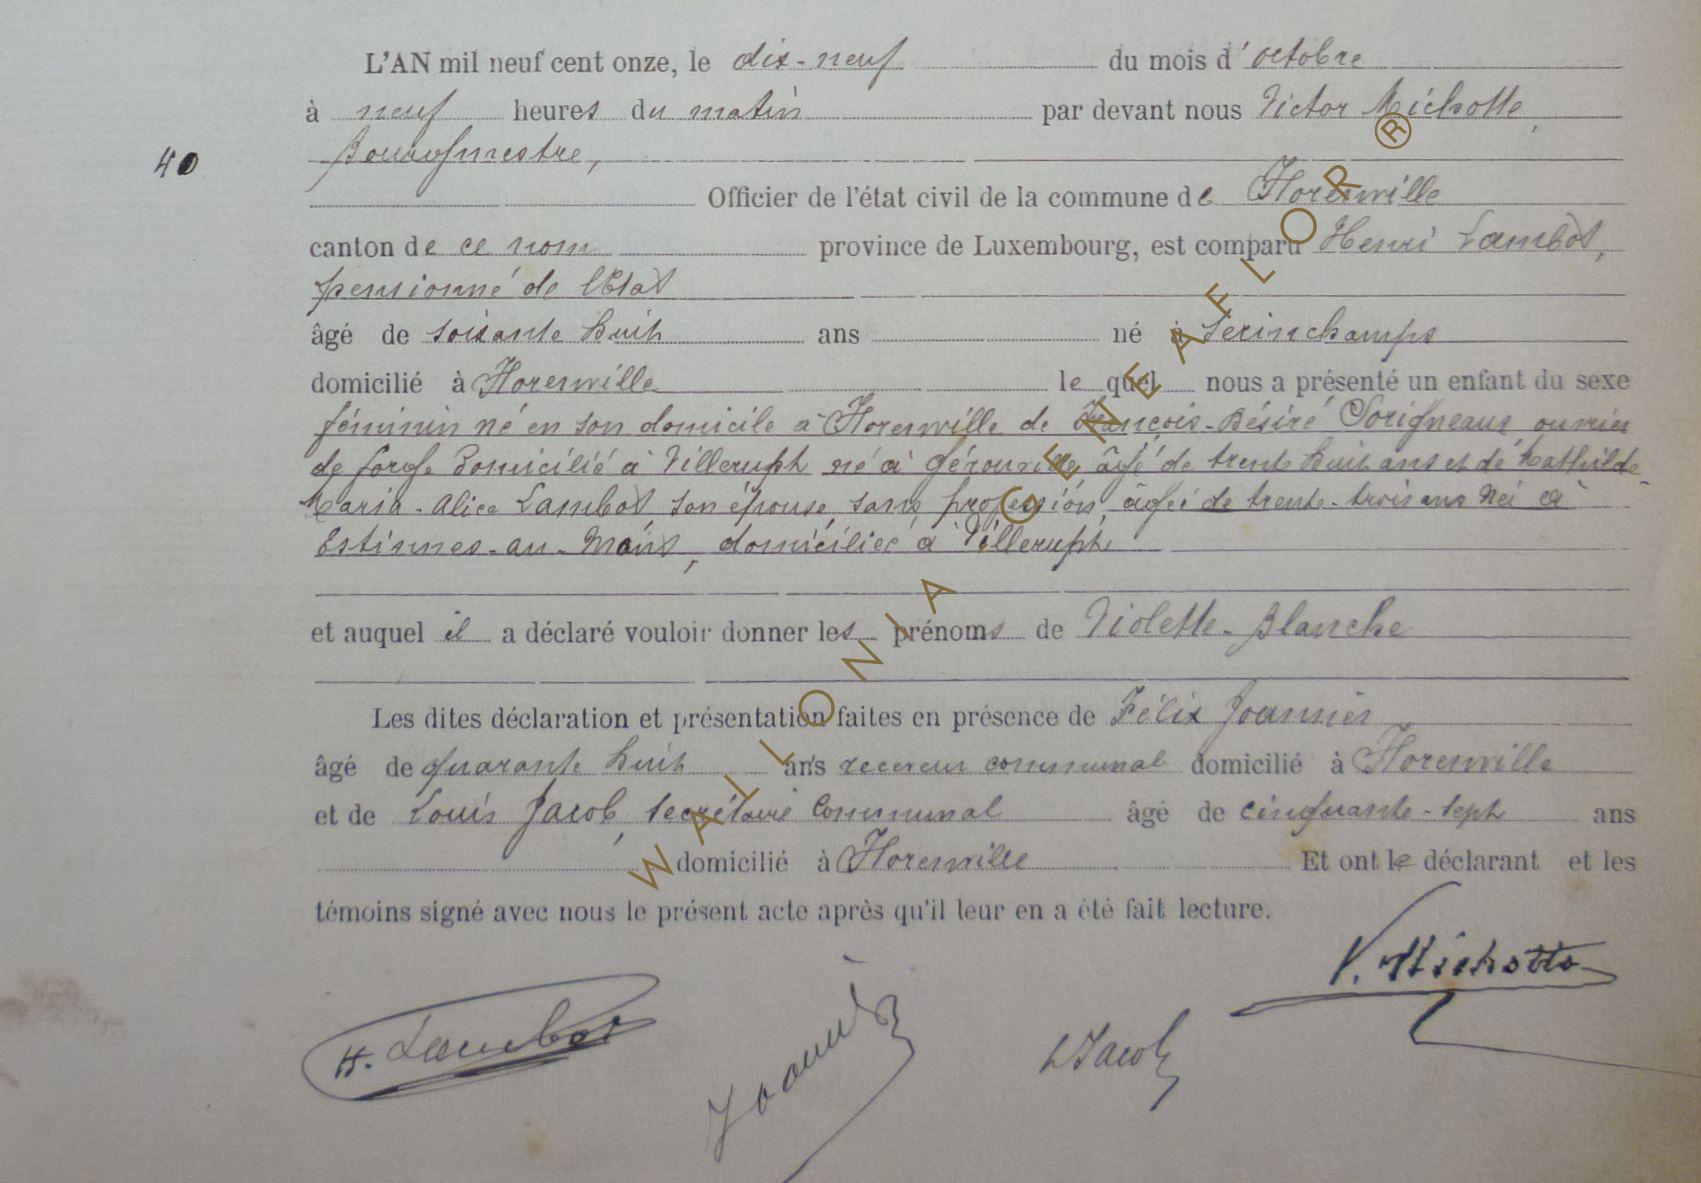 L'AN mil neuf cent onze, le dix-neuf du mois d'octobre
à neuf heures du matin par devant nous Victor Michotte,
40
Bourgmestre,
Officier de l'état civil de la commune de Florenville
canton de ce nom province de Luxembourg, est comparu Henri Lambot,
pensionné de l'Etat
âgé de soixante huit ans né à Serinchamps
domicilié à Florenville le quel nous a présenté un enfant du sexe
féminin né en son domicile à Florenville de François-Désiré Sorigneaux ouvrier
de forge domicilié à Villerupt né à Gérouville, âgé de trente huit ans et de Mathilde-
Maria-Alice Lambot son épouse, sans profession, âgée de trente-trois ans née à
Estinnes-au-Mont, domiciliée à Villerupt
et auquel il a déclaré vouloir donner les prénoms de Violette-Blanche
Les dites déclaration et présentation faites en présence de Félix Joannès
âgé de quarante huit ans receveur communal domicilié à Florenville
et de Louis Jacob, secrétaire communal âgé de cinquante-sept ans
domicilié à Florenville Et ont le déclarant et les
témoins signé avec nous le présent acte après qu'il leur en a été fait lecture.
V. Michotte
H. Lambot
L Jacob
WALLONIA GENEAFLOR ®